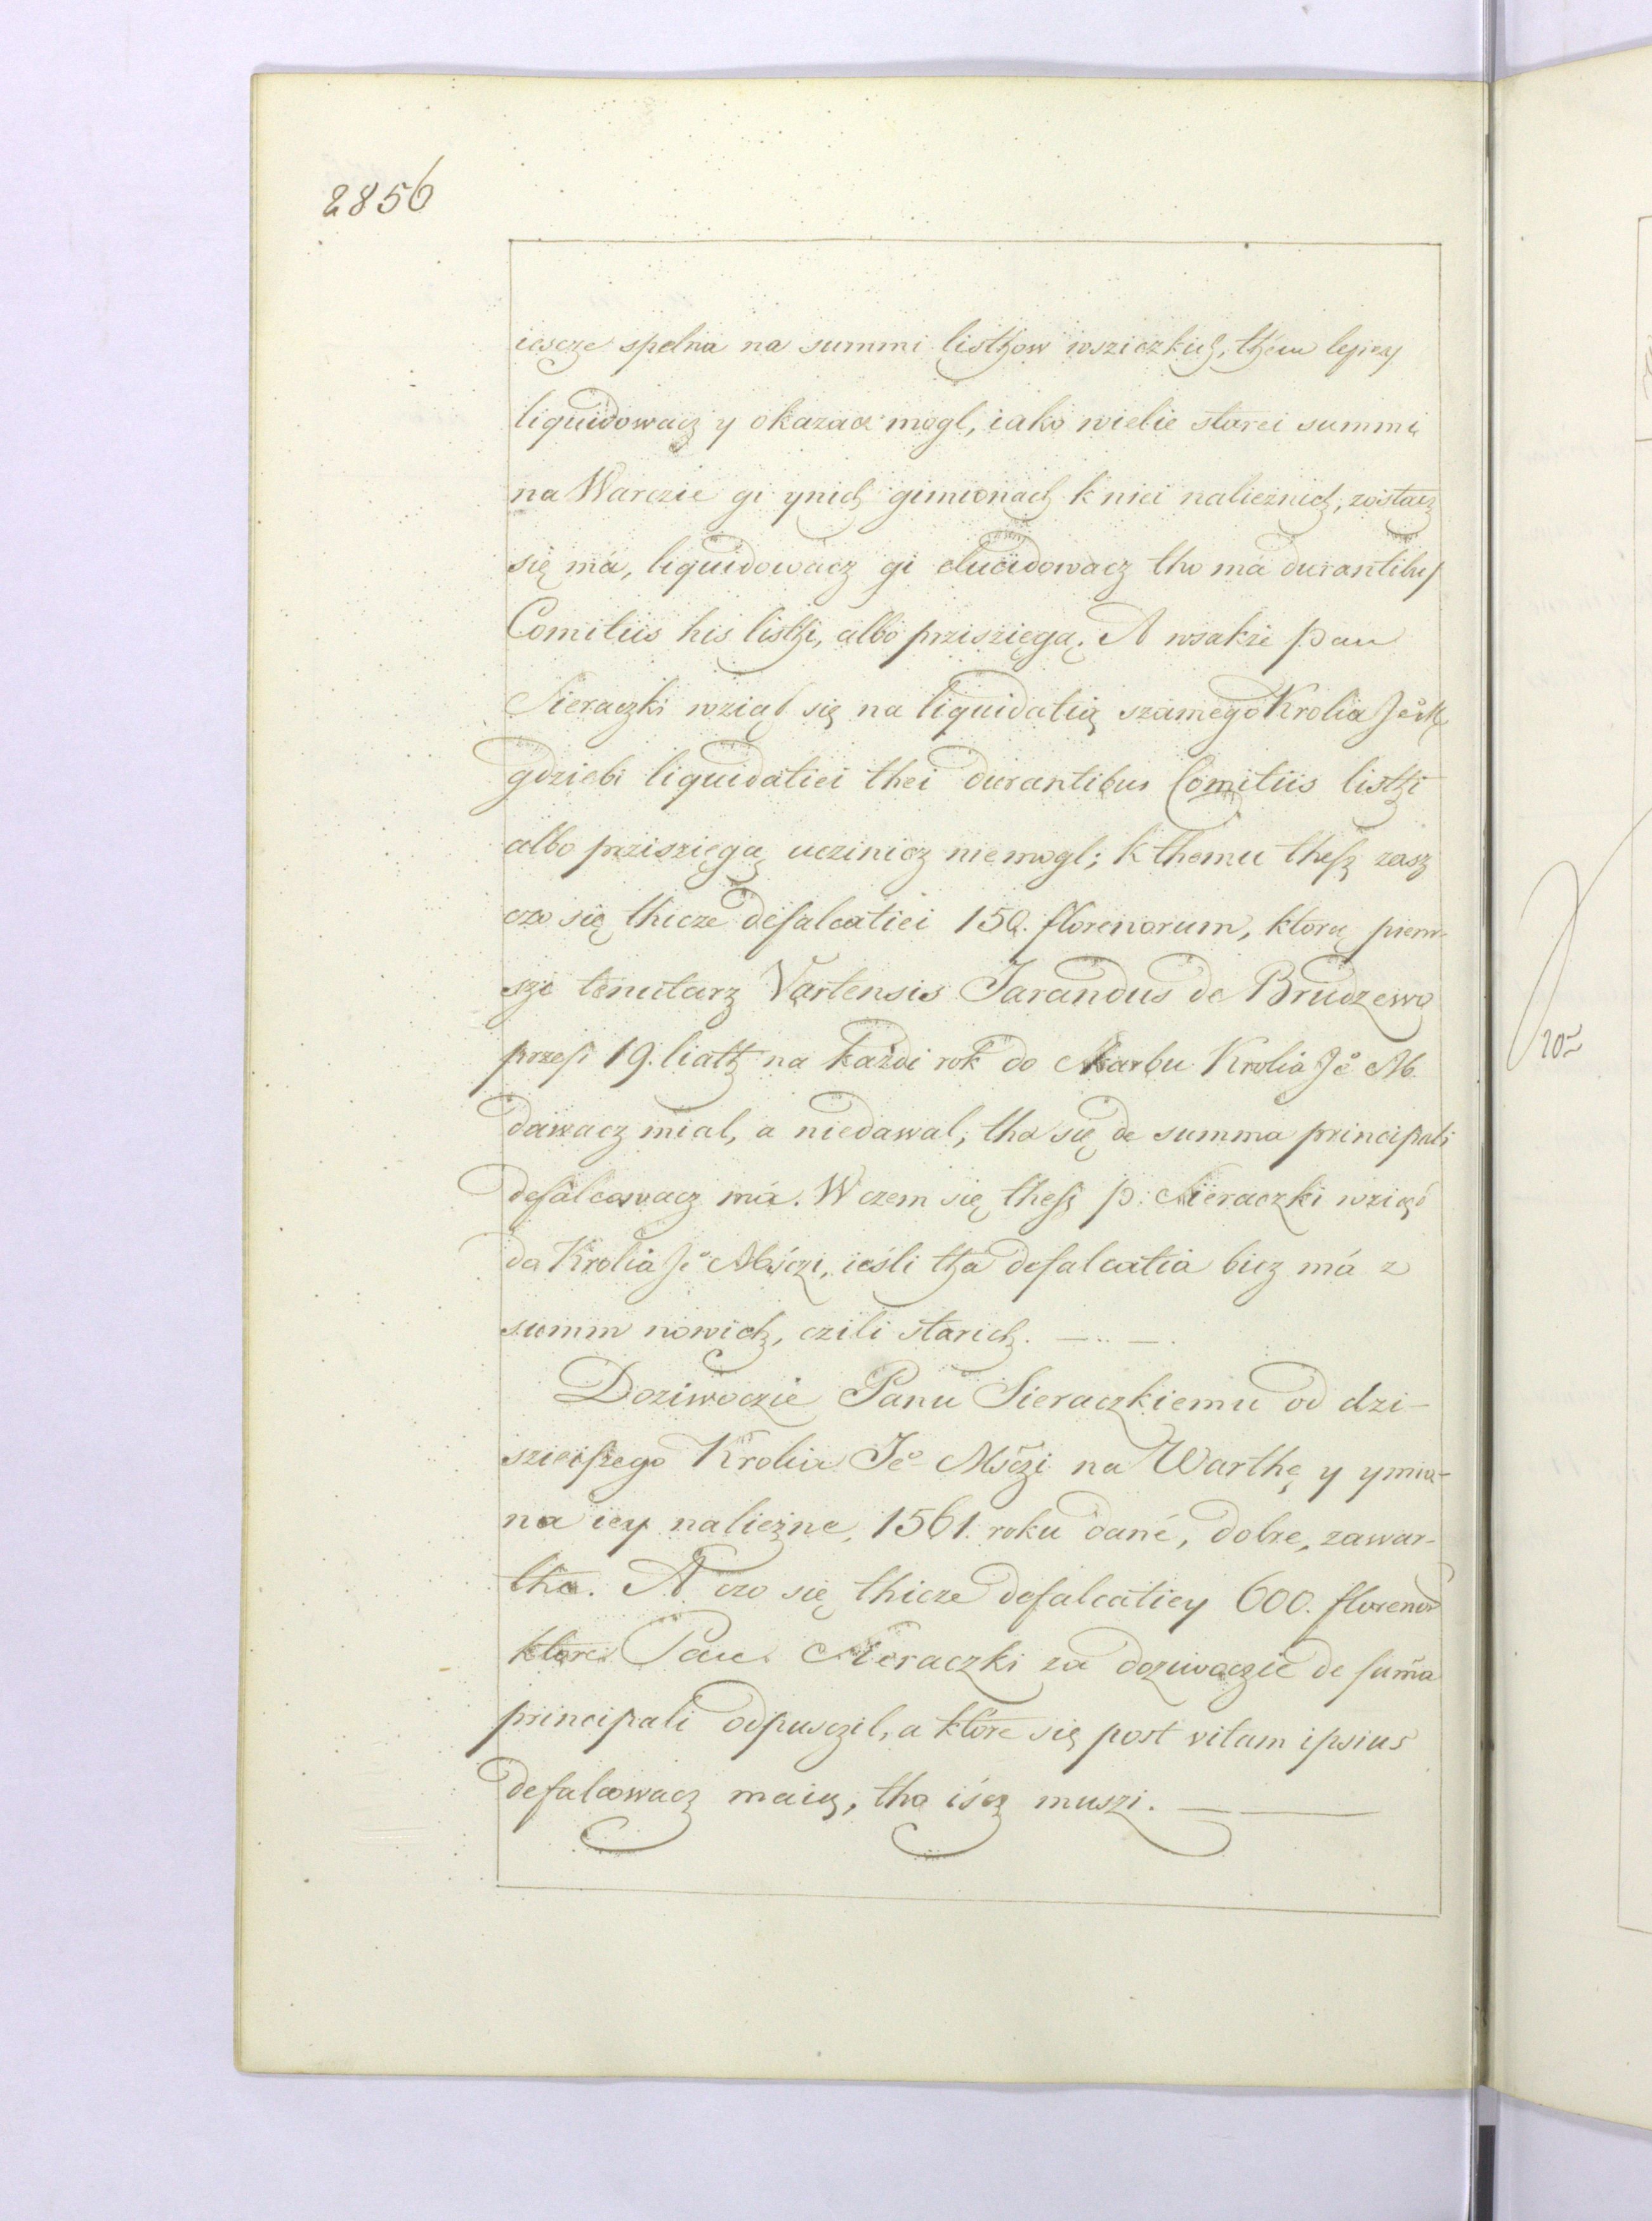 2856
iescze spelna na summi listhow wsziczkich, them lepiey
liquidowacz y okazacz mogl, iako wielie starei summi
na Warczie gi ynich gimionach k niei nalieznich, zostacz
się má, liquidowacz gi elucidowacz tho ma durantibus
Comitiis his listhi, albo prziszięgą. A wsakże pan
Sieraczki wziął się na liquidatią szamego Krolia Je° M.
gdziebi liquidatiei thei durantibus Comitiis listhi
albo prziszięgą uczinicz niemogl; k themu thesz zasz
czo się thicze defalcatiei 150. florenorum, ktorą pierw-
szi tenutarz Vartensis Jarandus de Brudzewo
przesz 19. liath na każdi rok do Skarbu Krolia Je° M.
dawacz mial, a niedawal, tha się de summa principali
defalcowacz má. W czem się thesz p. Sieraczki wziął
do Krolia Je° Mśczi, iesli tha defalcatia bicz má z
summ nowich, czili starich. — .. —.
Doziwoczie Panu Sieraczkiemu od dzi-
szieiszego Krolia Je° Mśczi na Warthę y ymia-
na iey nalieżne, 1561. roku dané, dobre, zawar-
tha. A czo się thicze defalcatiey 600. florenor
ktore Pan Sieraczki za doziwoczie de sum̃a
principali odpusczil, a ktore się post vitam ipsius
defalcowacz maią, tho iścz muszi. — ——
20